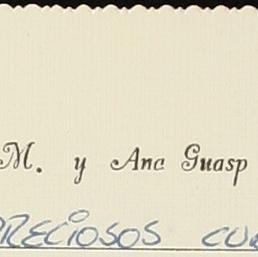 M. y Ana Guasp
PRECIOSOS